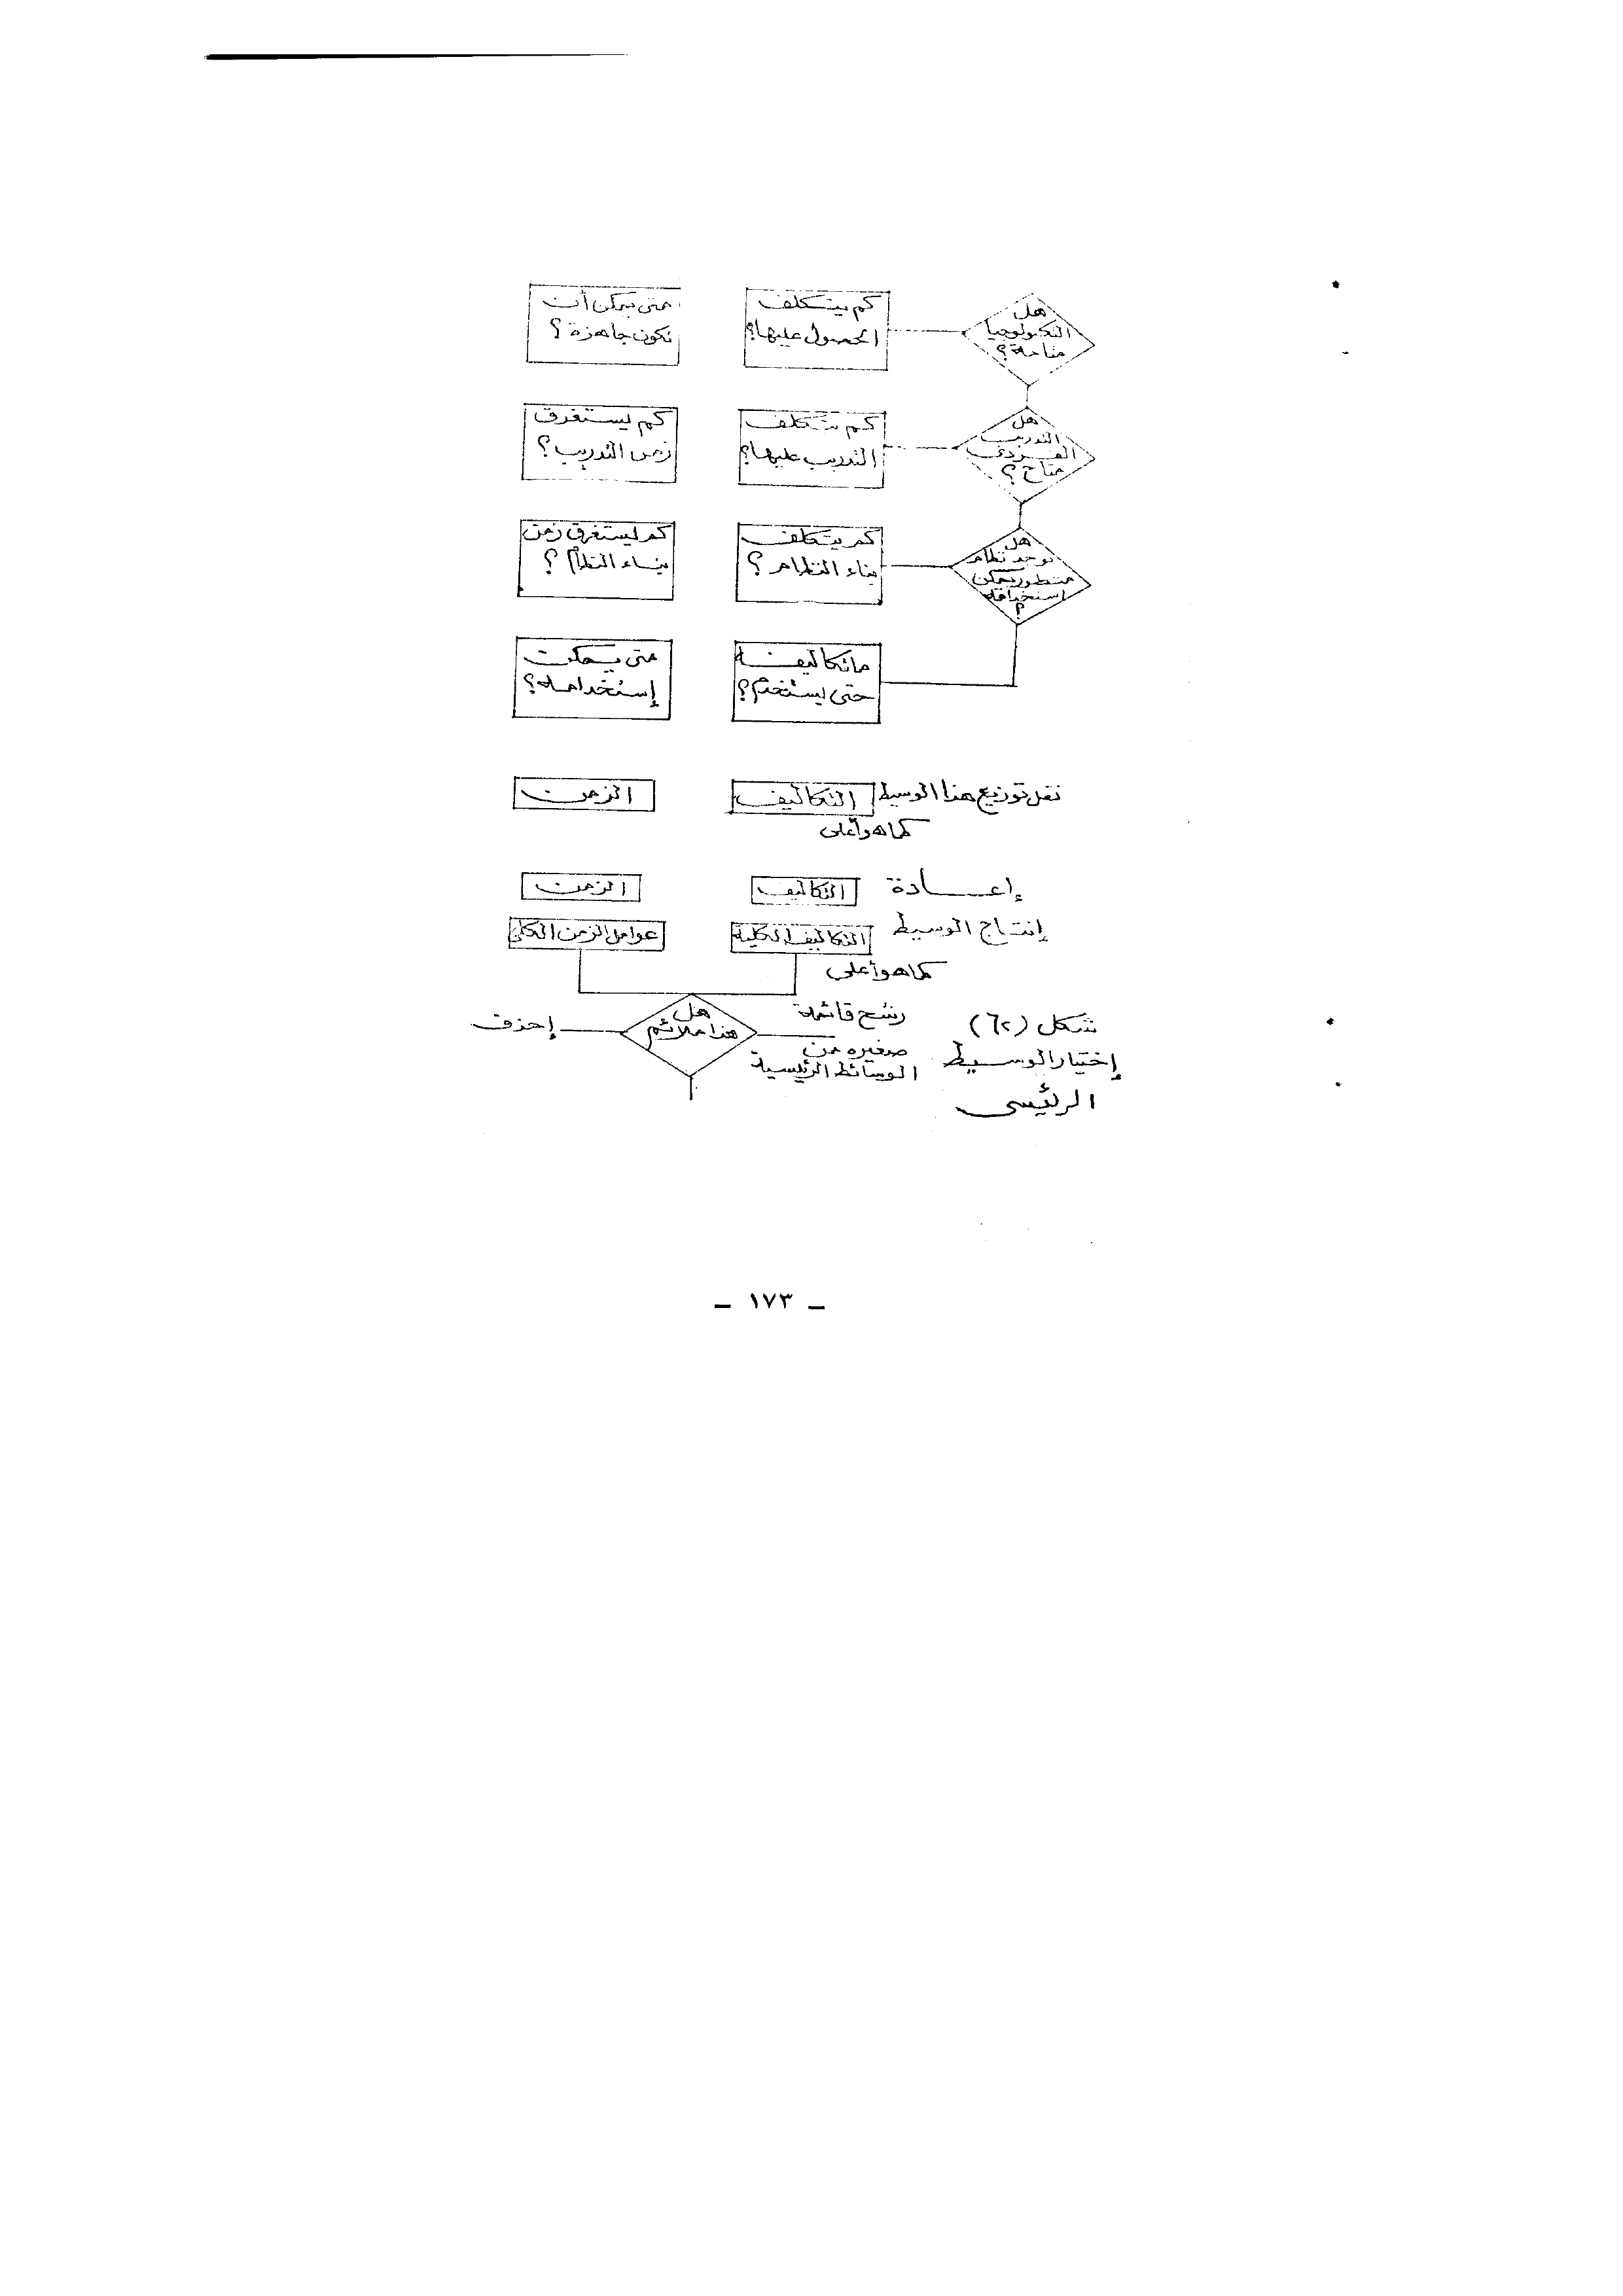 هل
التكنولوجيا
متاحة؟
كم يتكلف
الحصول عليها؟
متى يمكن أن
تكون جاهزة؟
هل
التدريب
الفردى
متاح؟
كم يتكلف
التدريب عليها؟
كم يستغرق
زمن التدريب؟
هل
يوجد نظام
متطور يمكن
استخدامه
؟
كم يتكلف
بناء النظام؟
كم يستغرق زمن
بناء النظام؟
ما تكاليفه
حتى يستخدم؟
متى يمكن
إستخدامه؟
نقل توزيع هذا الوسيط
التكاليف
الزمن
كما هو أعلى
إعادة
التكاليف
الزمن
إنتاج الوسيط
التكاليف الكلية
عوامل الزمن الكلى
كما هو أعلى
هل
هذا ملائم
إحذف
رشح قائمة
صغيره من
الوسائط الرئيسية
شكل (٦٢)
إختيار الوسيط
الرئيسى
– ١٧٣ –